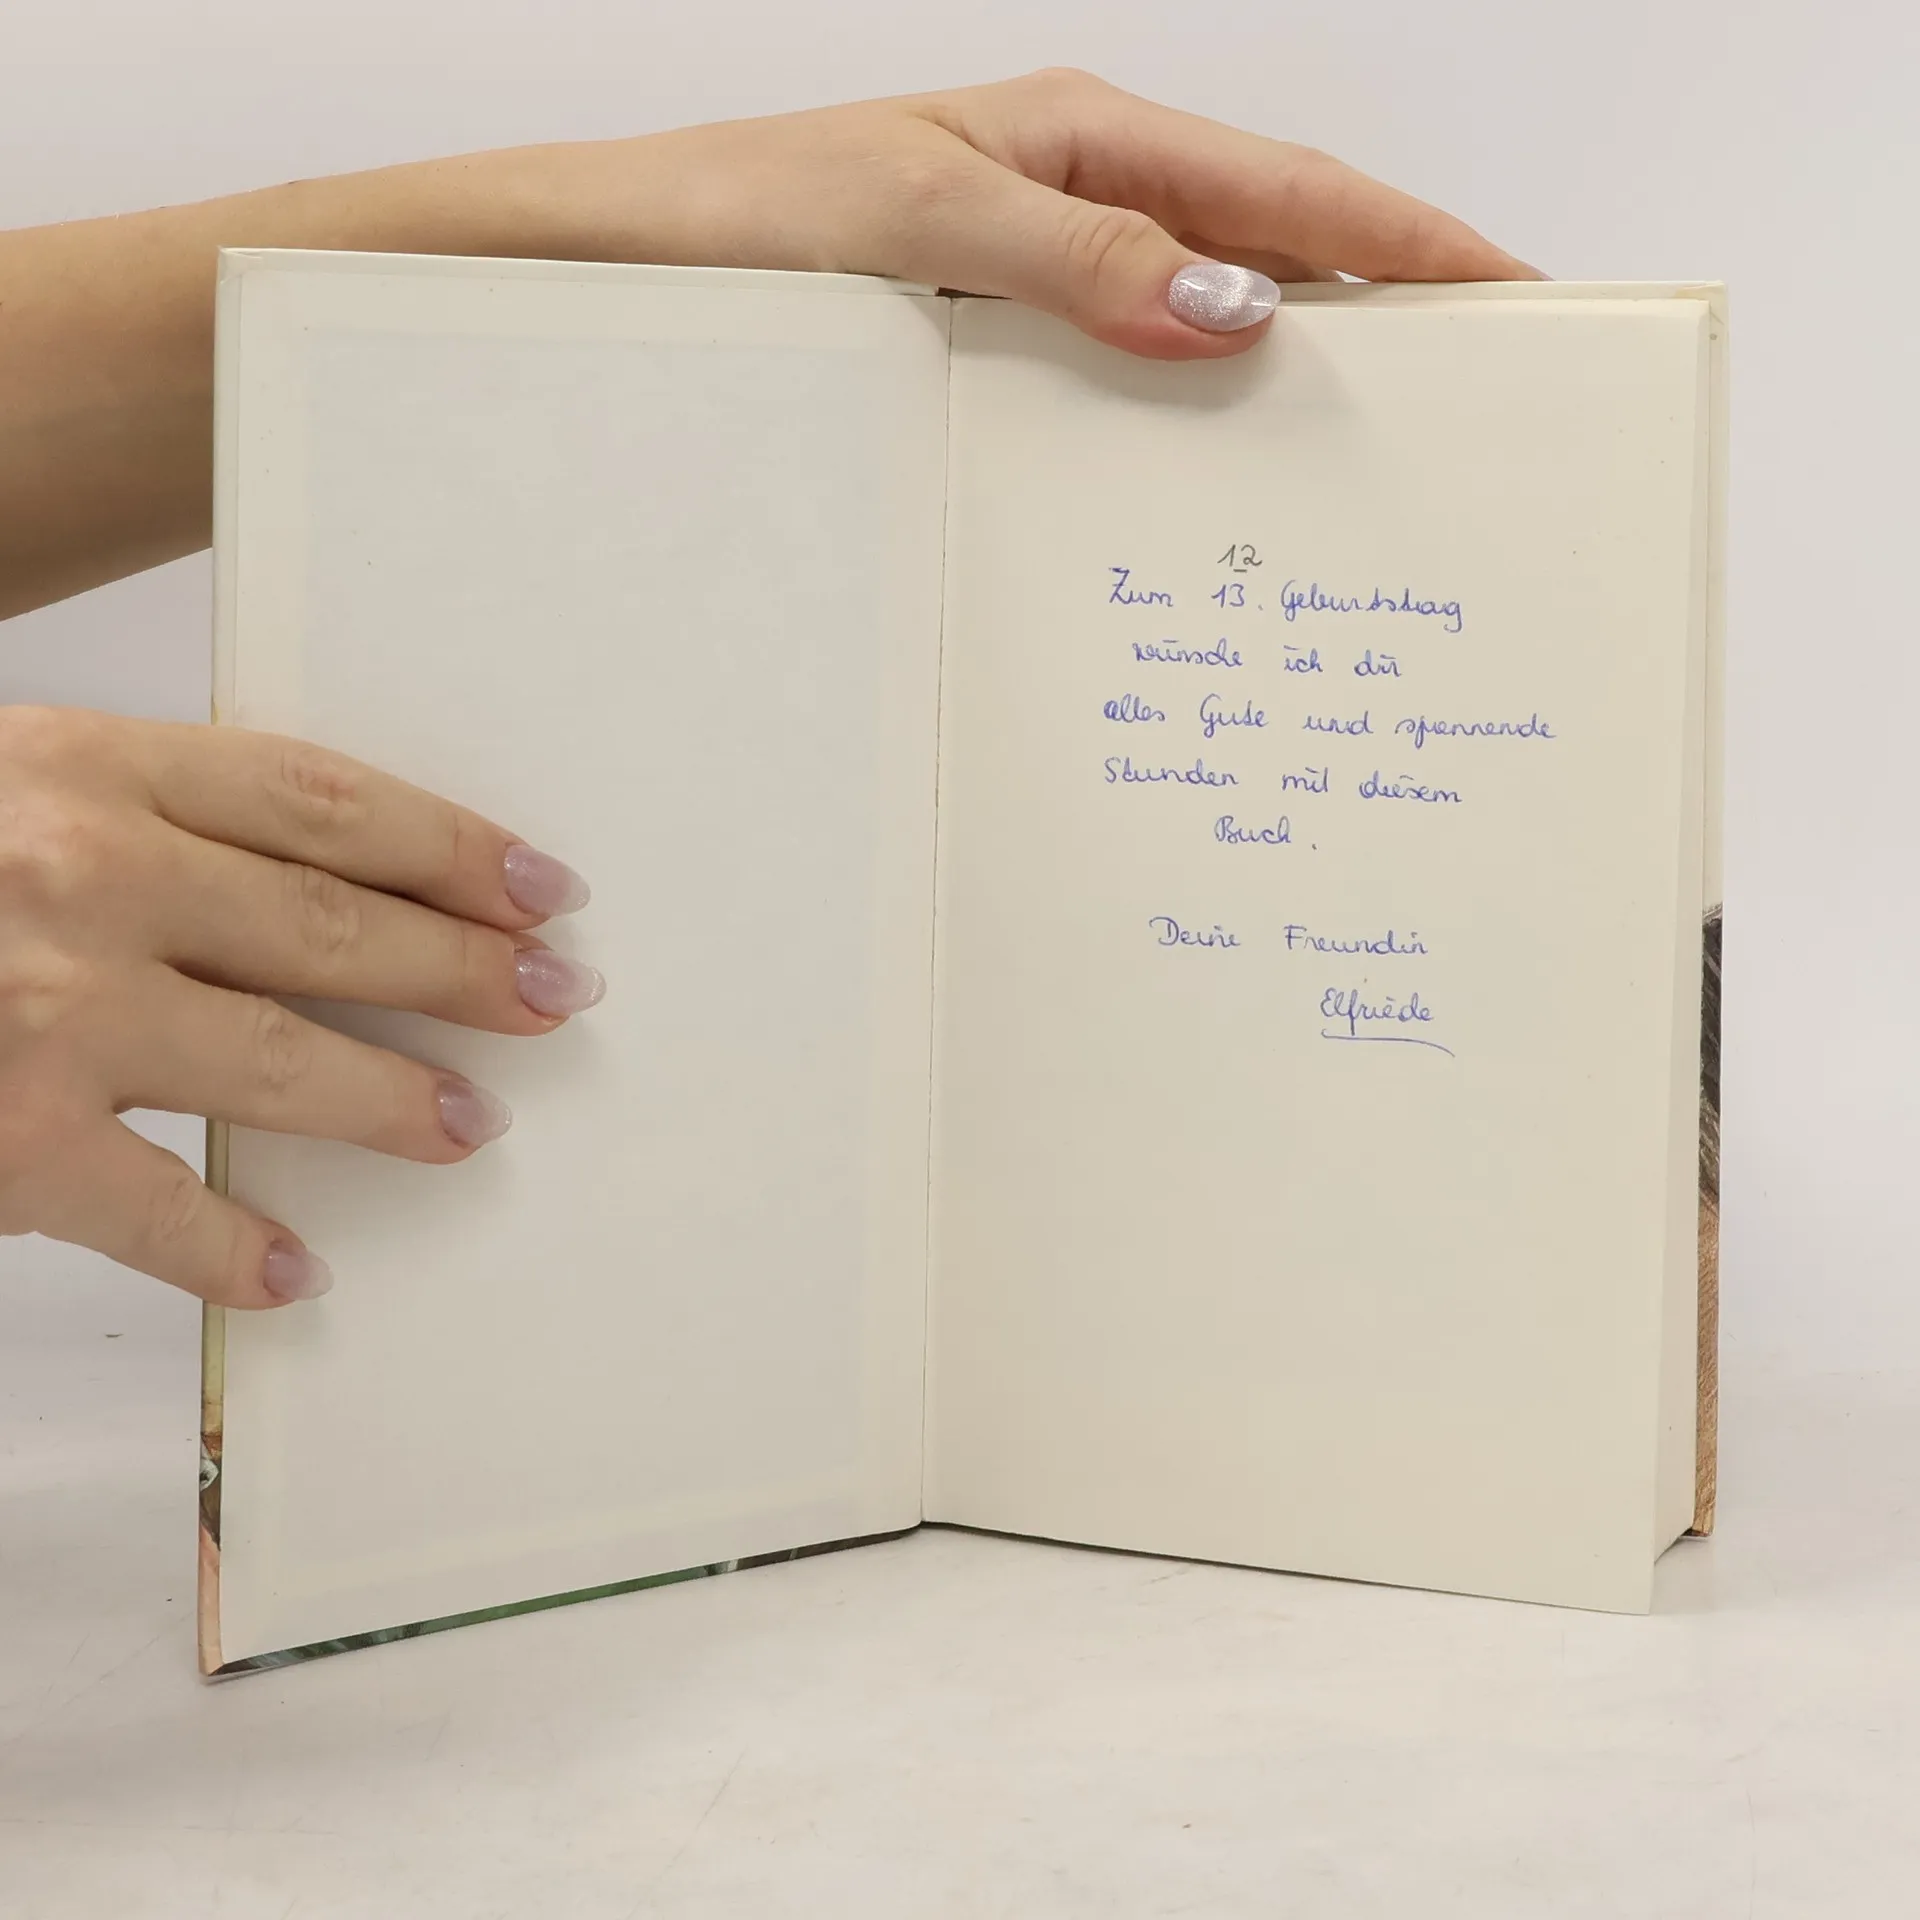 12
Zum 13. Geburtstag
wünsche ich dir
alles Gute und spannende
Stunden mit diesem
Buch.
Deine Freundin
Elfriede